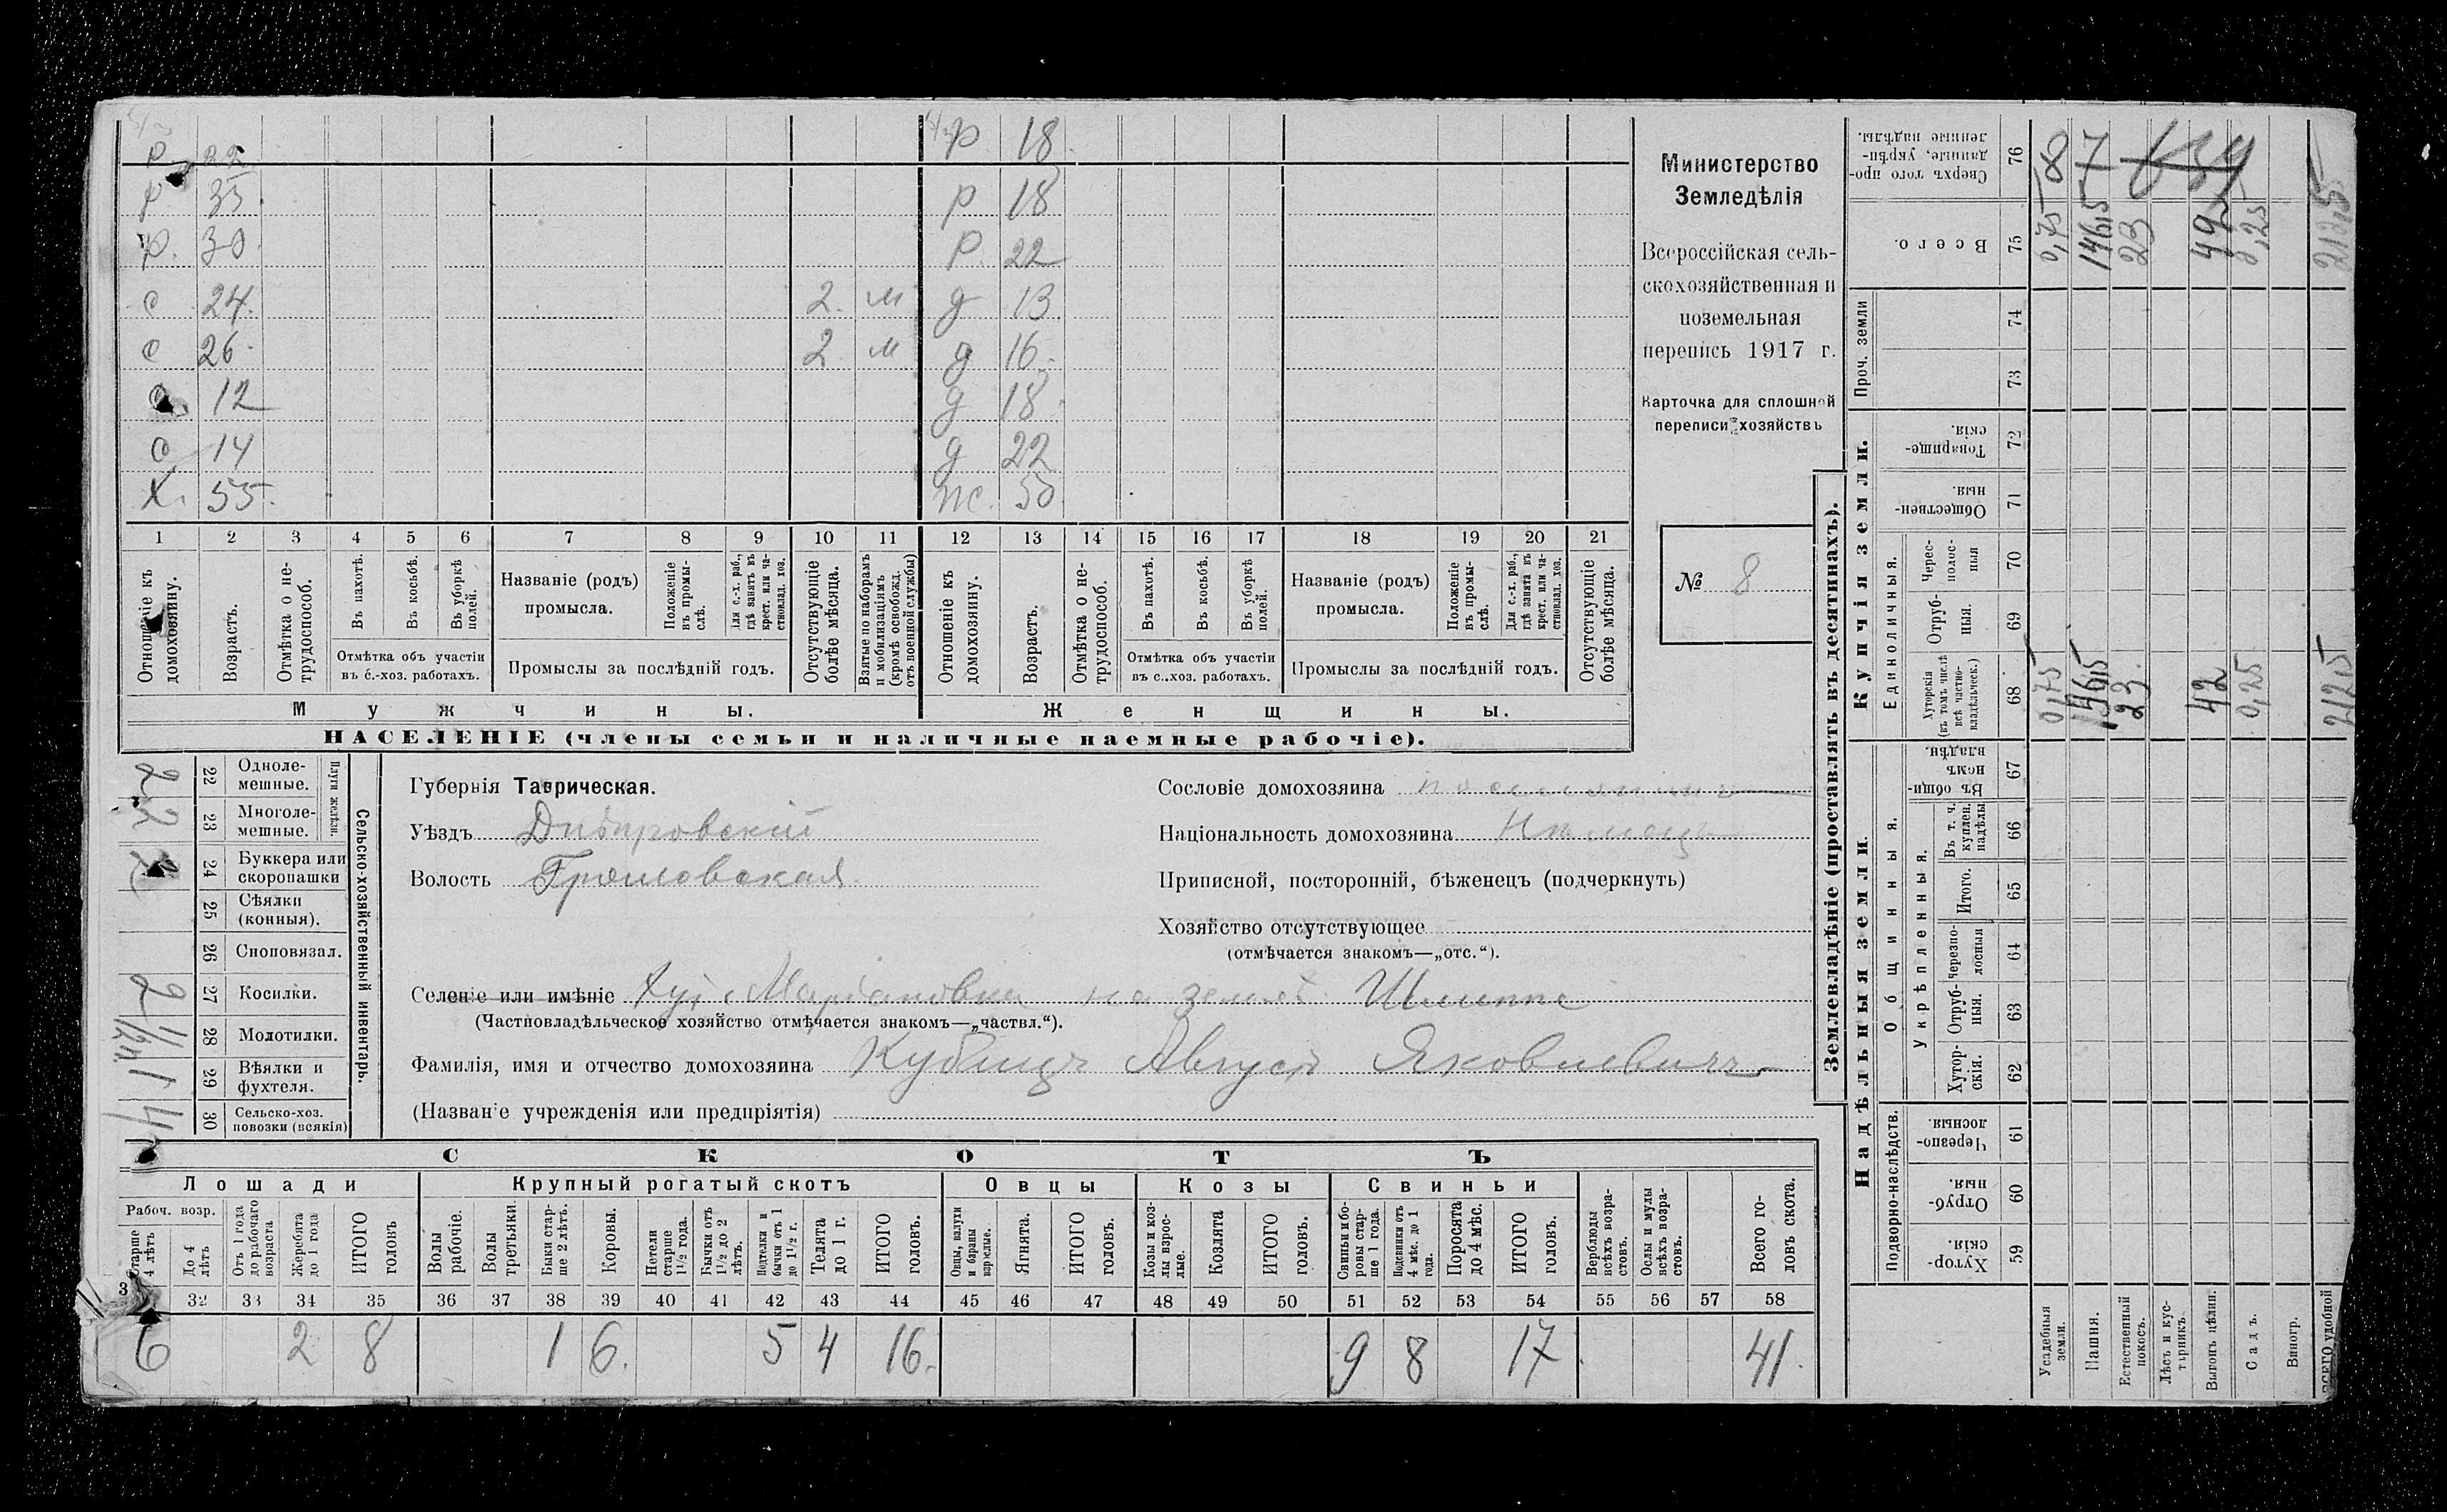 р 22 р 18
р 35. р 18
р. 30 р. 22
с 24. 2. м д 13
с 26. 2 м д 16.
с. 12 д 18.
с 14 д 22
х. 55. ж. 50
1 2 3 4 5 6 7 8 9 10 11 12 13 14 15 16 17 18 19 20 21
Отношеніе къ домохозяину.
Возрастъ.
Отмѣтка о нетрудоспособ.
Въ пахотѣ.
Въ косьбѣ.
Въ уборкѣ полей.
Отмѣтка объ участіи
въ с.-хоз. работахъ.
Названіе (родъ)
промысла.
Положеніе въ промыслѣ.
Для с.-х. раб., гдѣ занятъ въ крест. или частновлад. хоз.
Промыслы за послѣдній годъ.
Отсутствующіе болѣе мѣсяца.
Взятые по наборамъ и мобилизаціямъ (кромѣ освобожд. отъ военной службы)
Отношеніе къ домохозяину.
Возрастъ.
Отмѣтка о нетрудоспособ.
Въ пахотѣ.
Въ косьбѣ.
Въ уборкѣ полей.
Отмѣтка объ участіи
въ с.-хоз. работахъ.
Названіе (родъ)
промысла.
Положеніе въ промыслѣ.
Для с.-х. раб., гдѣ занята въ крест. или частновлад. хоз.
Промыслы за послѣдній годъ.
Отсутствующіе болѣе мѣсяца.
Мужчины. Женщины.
НАСЕЛЕНІЕ (члены семьи и наличные наемные рабочіе).
Министерство
Земледѣлія
Всероссійская сель-
скохозяйственная и
поземельная
перепись 1917 г.
Карточка для сплошной
переписи хозяйствъ
№ 8
Сельско-хозяйственный инвентарь.
Плуги желѣзн.
22 Одноле-
мешные. 2
23 Многоле-
мешные. 2
24 Буккера или
скоропашки 2
25 Сѣялки
(конныя).
26 Сноповязал.
27 Косилки. 2
28 Молотилки.
29 Вѣялки и
фухтеля. 1
30 Сельско-хоз.
повозки (всякія) 4
Губернія Таврическая.
Уѣздъ Днѣпровскій
Волость Громовская
Сословіе домохозяина поселянинъ
Національность домохозяина Нѣмецъ
Приписной, посторонній, бѣженецъ (подчеркнуть)
Хозяйство отсутствующее
(отмѣчается знакомъ—„отс.“).
Селеніе или имѣніе Хут. Маріановка на землѣ Шлиппе
(Частновладѣльческое хозяйство отмѣчается знакомъ—„частвл.“).
Фамилія, имя и отчество домохозяина Кублицъ Августъ Яковлевичъ
(Названіе учрежденія или предпріятія)
СКОТЪ
Лошади Крупный рогатый скотъ Овцы Козы Свиньи
Рабоч. возр.
Старше 4 лѣтъ
До 4 лѣтъ
Отъ 1 года до рабочаго возраста
Жеребята до 1 года
ИТОГО головъ
Волы рабочіе.
Волы третьяки.
Быки старше 2 лѣтъ.
Коровы.
Нетели старше 1½ года.
Бычки отъ 1½ до 2 лѣтъ.
Подтелки и бычки отъ 1 до 1½ г.
Телята до 1 г.
ИТОГО головъ.
Овцы, валухи и бараны взрослые.
Ягнята.
ИТОГО головъ.
Козы и козлы взрослые.
Козлята
ИТОГО головъ.
Свиньи и боровы старше 1 года.
Подсвинки отъ 4 мѣс. до 1 года.
Поросята до 4 мѣс.
ИТОГО головъ.
Верблюды всѣхъ возрастовъ.
Ослы и мулы всѣхъ возрастовъ.
Всего головъ скота.
3 32 33 34 35 36 37 38 39 40 41 42 43 44 45 46 47 48 49 50 51 52 53 54 55 56 57 58
6 2 8 1 6. 5 4 16. 9 8 17. 41.
Землевладѣніе (проставлять въ десятинахъ).
Купчія земли.
Надѣльныя земли.
Сверхъ того проданные, укрѣпленные надѣлы. 76
Всего. 75
Проч. земли
74
73
Товарищескія. 72
Общественныя. 71
Единоличныя.
Чересполосныя 70
Отрубныя. 69
Хуторскія (въ томъ числѣ всѣ частновладѣльческ.) 68
Общинныя.
Въ общинномъ владѣн. 67
Укрѣпленныя.
Въ т. ч. куплен. надѣлы 66
Итого. 65
Черезполосныя 64
Отрубныя. 63
Хуторскія. 62
Подворно-наслѣдств.
Черезполосныя. 61
Отрубныя. 60
Хуторскія. 59
Усадебныя земли. 0,75 0,75
Пашня. 146,5 146,5
Естественный покосъ. 23. 23
Лѣсъ и кустарникъ.
Выгонъ цѣлин. 42
Садъ. 0,25 0,25
Виногр.
ВСЕГО удобной 212,5 212,5